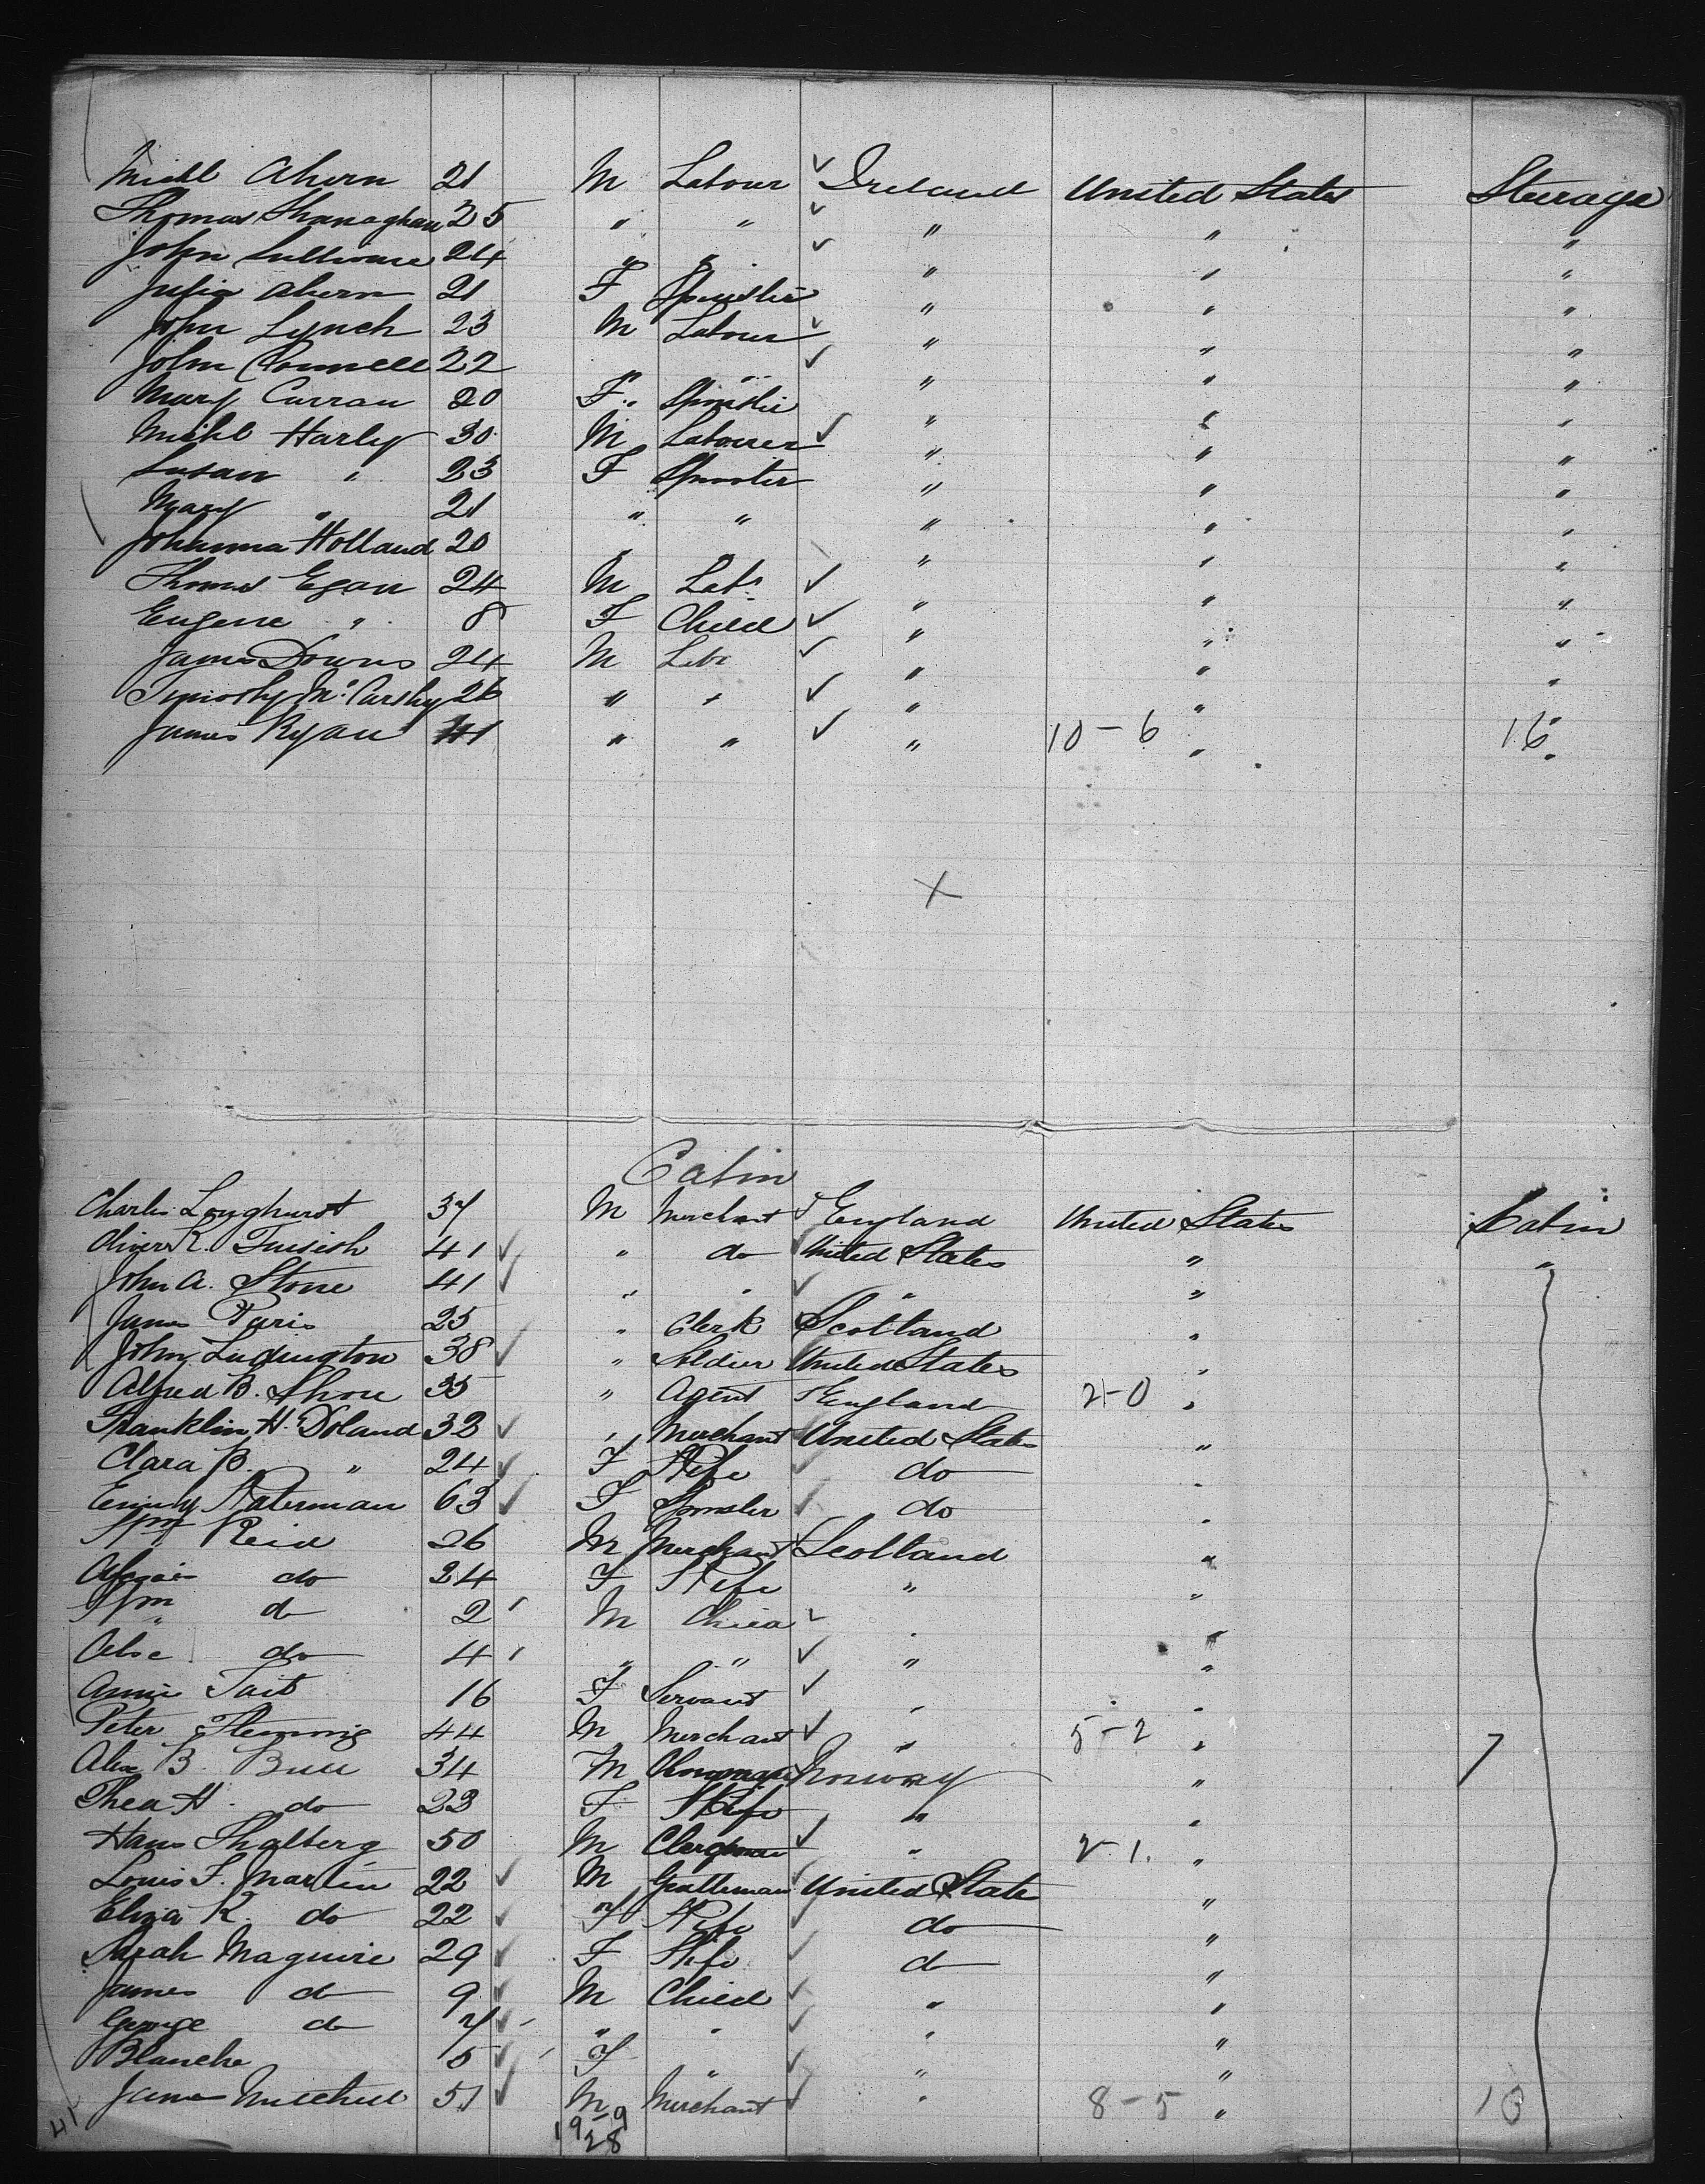 Michl Ahern 21 M Labour ✓ Ireland United States Steerage
Thomas Shanaghan 25 " " ✓ " " "
John Sullivan 24 " " ✓ " " "
Julia Ahern 21 F Spinster " " "
John Lynch 23 M Labour ✓ " " "
John Connell 22 " " ✓ " " "
Mary Curran 20 F " Spinster " " "
Michl Harly 30 M Labourer ✓ " " "
Susan " 23 F Spinster " " "
Mary " 21 " " " " "
Johanna Holland 20 " " " " "
Thomas Egan 24 M Labr ✓ " " "
Eugene " 8 F Child ✓ " " "
James Downs 24 M Labr ✓ " " "
Timothy McCarthy 26 " " ✓ " " "
James Ryan 41 " " ✓ " 10-6 " 16 "
X
Cabin
Charles Longhurst 37 M Merchant ✓ England United States Cabin
Oliver K. 41 ✓ " do ✓ United States " "
John A. Stone 41 ✓ " " ✓ " "
James Paris 25 " Clerk Scotland "
John Ludington 38 ✓ " Soldier United States "
Alfred B. 35 " Agent ✓ England 2-0 "
Franklin H. Doland 32 ✓ " Merchant United States "
Clara B. " 24 ✓ F Wife ✓ do "
Emily Waterman 63 ✓ F Spinster ✓ do "
Wm Reid 26 M Merchant Scotland "
do 24 F Wife " "
Wm do 2 M Child ✓ " "
do 4 " " ✓ " "
Annie Tait 16 F Servant ✓ " "
Peter Fleming 44 M Merchant ✓ " 5-2 " 7
Alex B. Bull 34 M Norway "
Thea H. do 23 F Wife " "
Hans Thalberg 50 M Clergman ✓ " 2-1. "
Louis F. Martin 22 ✓ M Gentleman ✓ United State "
Eliza K. do 22 ✓ F Wife ✓ do "
Sarah Maguire 29 ✓ F Wife ✓ do "
James do 9 ✓ M Child ✓ " "
George do 7 ✓ " " ✓ " "
Blanche 5 ✓ F " ✓ " "
James Mitchell 51 ✓ M Merchant ✓ " 8-5 " 18
41 19-9
28